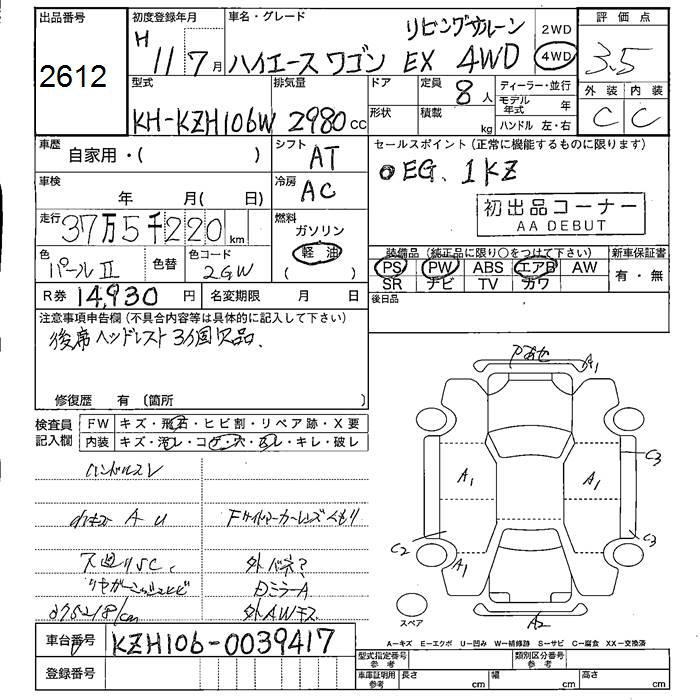 出品番号
2612
初度登録年月
H 11 7月
車名・グレード
リビングサルーン
ハイエース ワゴン EX 4WD
2WD
4WD
評価点
3.5
外装 内装
C C
型式
KH-KZH106W
排気量
2980cc
ドア
形状
定員
8人
積載
kg
ディーラー・並行
モデル年式 年
ハンドル 左・右
車歴
自家用・( )
シフト
AT
車検
年 月( 日)
冷房
AC
走行
37万5千220km
燃料
ガソリン
軽油
( )
色
パールⅡ
色替
色コード
2GW
R券 14,930 円
名変期限 月 日
セールスポイント(正常に機能するものに限ります)
EG. 1KZ
初出品コーナー
AA DEBUT
装備品(純正品に限り○をつけて下さい)
PS PW ABS エアB AW
SR ナビ TV カワ
新車保証書
有・無
後日品
注意事項申告欄(不具合内容等は具体的に記入して下さい)
後席ヘッドレスト3ヶ国欠品.
修復歴 有 〔箇所 〕
検査員記入欄
FW キズ・飛石・ヒビ割・リペア跡・X要
内装 キズ・汚レ・コゲ・穴・スレ・キレ・破レ
ハンドルスレ
A U
Fサイドマーカーレンズくもり
下廻りSC.
外バネ?
DミラーA
375218km
外AWキズ
車台番号
KZH106-0039417
登録番号
A1
A1
A1
A1
A2
C2
C3
C3
スペア
A-キズ E-エクボ U-凹み W-補修跡 S-サビ C-腐食 XX-交換済
型式指定番号 参考
類別区分番号 参考
車庫証明用 参考
長さ cm
幅 cm
高さ cm